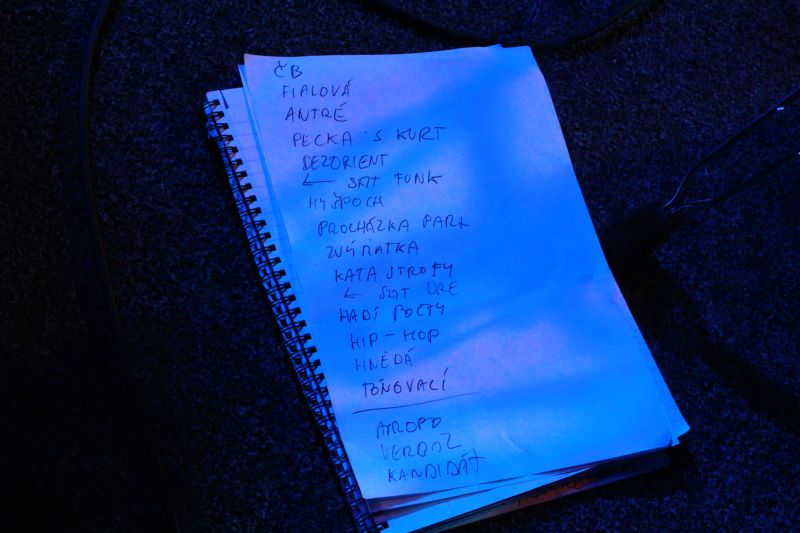 ČB
FIALOVÁ
ANTRÉ
PECKA S KURT
DEZORIENT
← SKIT FUNK
HYŠPOCH
PROCHÁZKA PARK
ZVÍŘATKA
KATASTROFY
← SKIT DRE
HADÍ POCTY
HIP-HOP
HNĚDÁ
TOŇOVACÍ
VERBÁŽ
KANDIDÁT